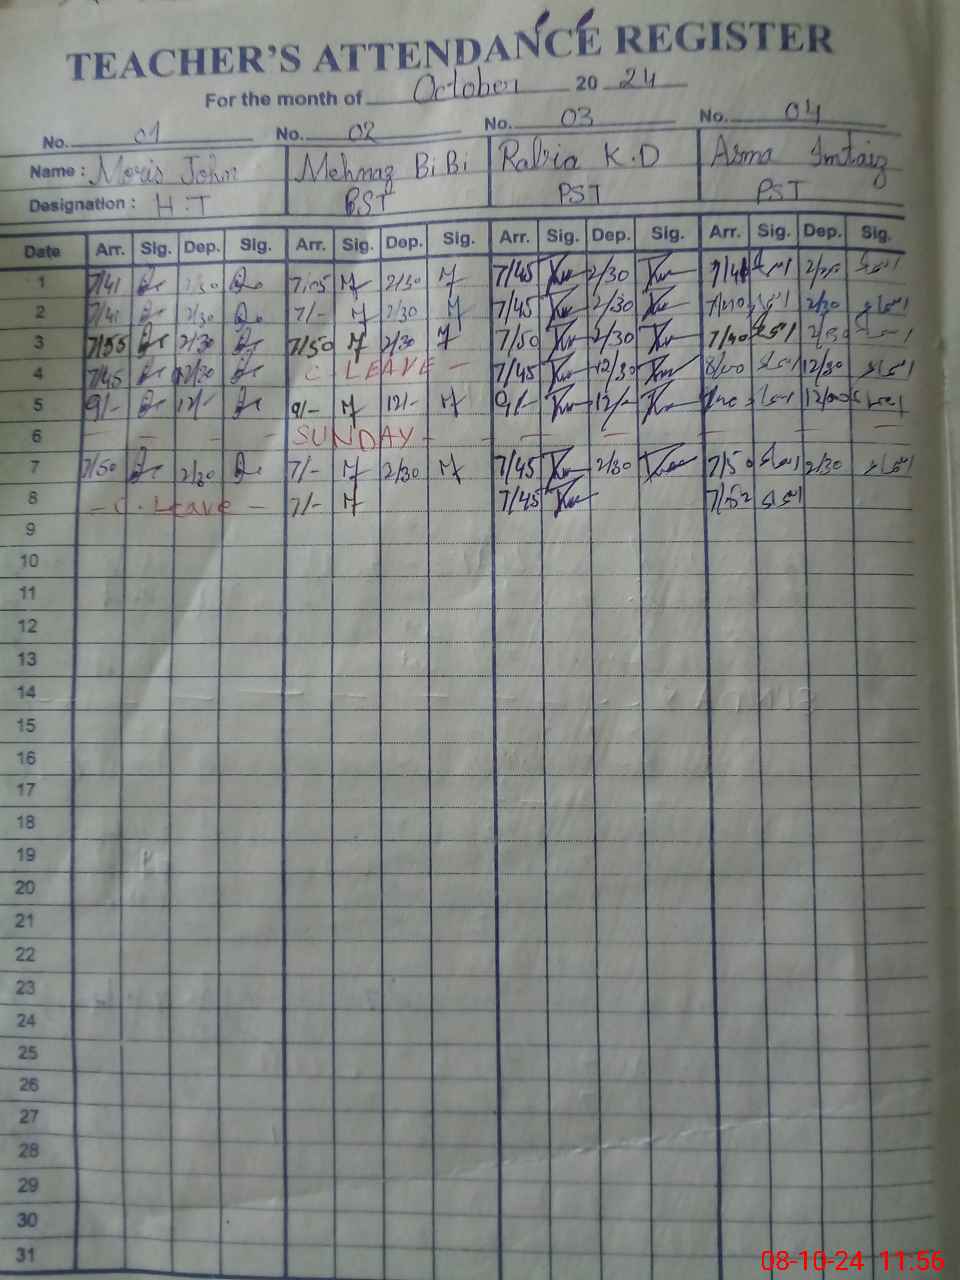 TEACHER'S ATTENDANCE REGISTER
For the month of October 20 24
No. 01 No. 02 No. 03 No. 04
Name : Moris John Mehnaz BiBi Rabia K.D Asma Imtaiz
Designation : H.T PST PST PST
Date Arr. Sig. Dep. Sig. Arr. Sig. Dep. Sig. Arr. Sig. Dep. Sig. Arr. Sig. Dep. Sig.
1 7/41 2/30 2/30 7/45 2/30
2 7/- 2/30 7/45 2/30 2/30
3 7/55 2/30 7/50 2/30 7/50 2/30 7/40
4 7/45 12/30 C. LEAVE - 7/45 12/30 8/00 12/30
5 9/- 12/- 9/- 12/- 9/- 12/- 12/00
6 - - - - SUNDAY - - - - - -
7 7/50 2/30 7/- 2/30 7/45 2/30 7/50 2/30
8 - C. Leave - 7/- 7/45 7/52
9
10
11
12
13
14
15
16
17
18
19
20
21
22
23
24
25
26
27
28
29
30
31
08-10-24 11:56